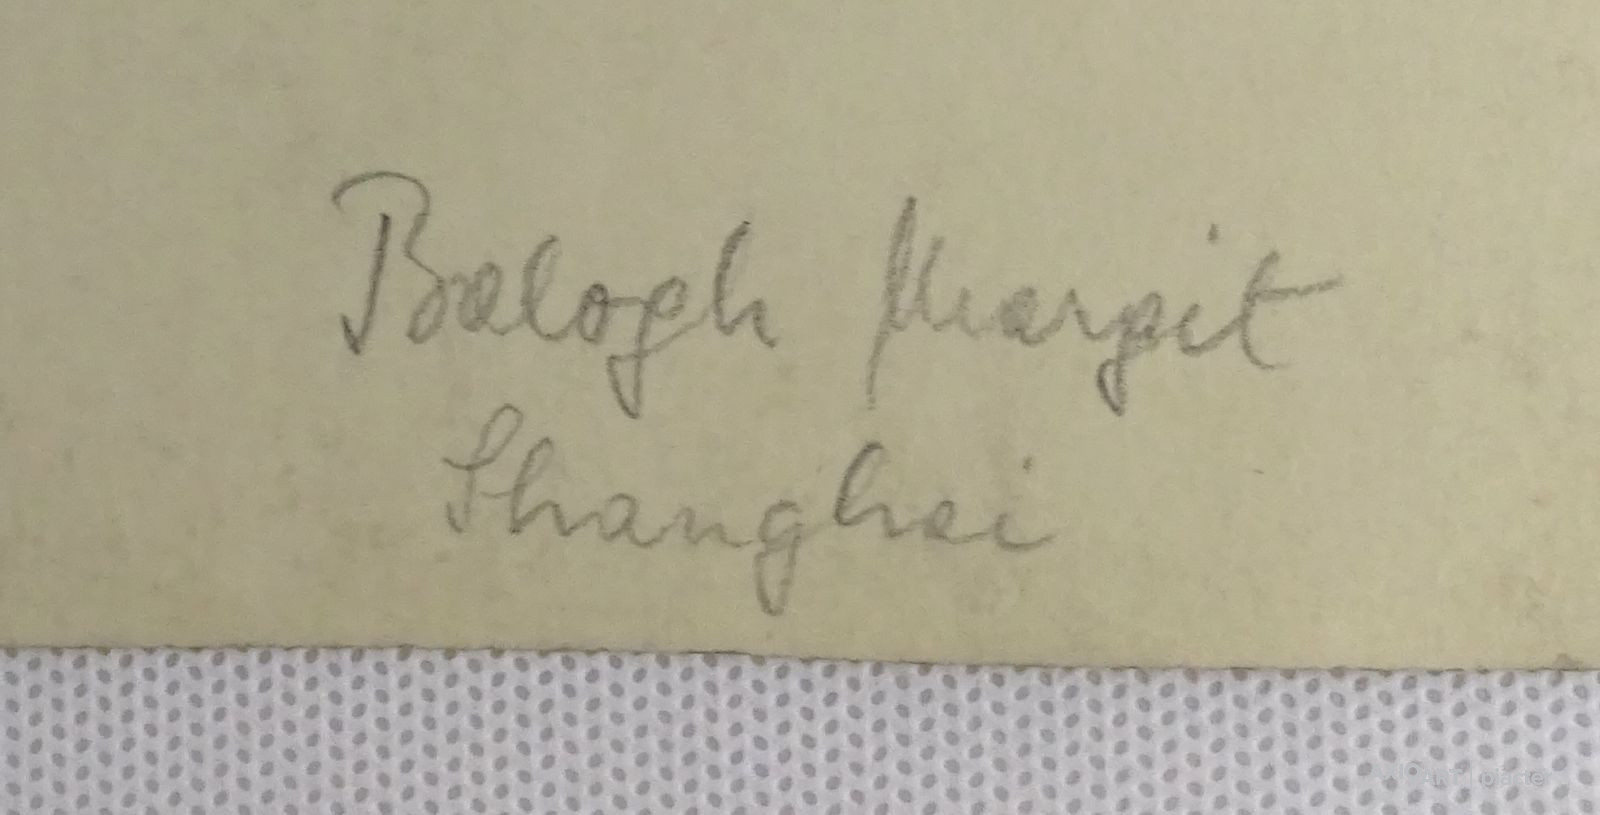 Balogh Margit
Shanghai